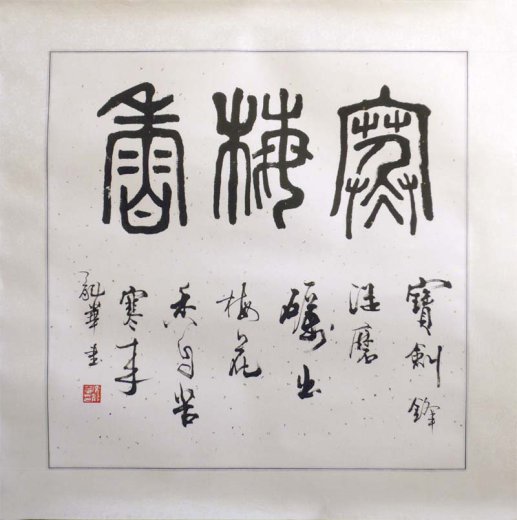 寒梅香
寶劍鋒
從磨
礪出
梅花
香自苦
寒來
華書